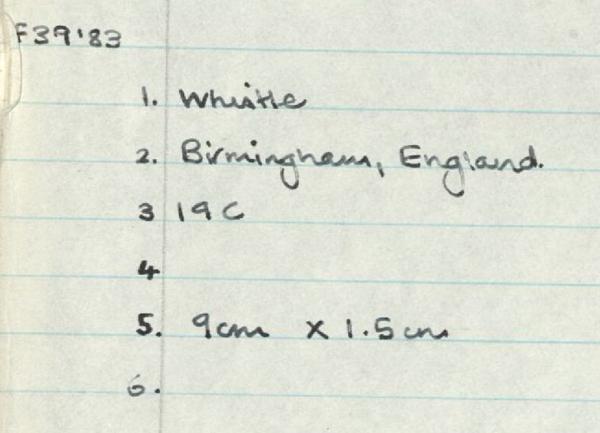 F39'83
1. Whistle
2. Birmingham, England.
3 19C
4
5. 9cm x 1.5cm
6.